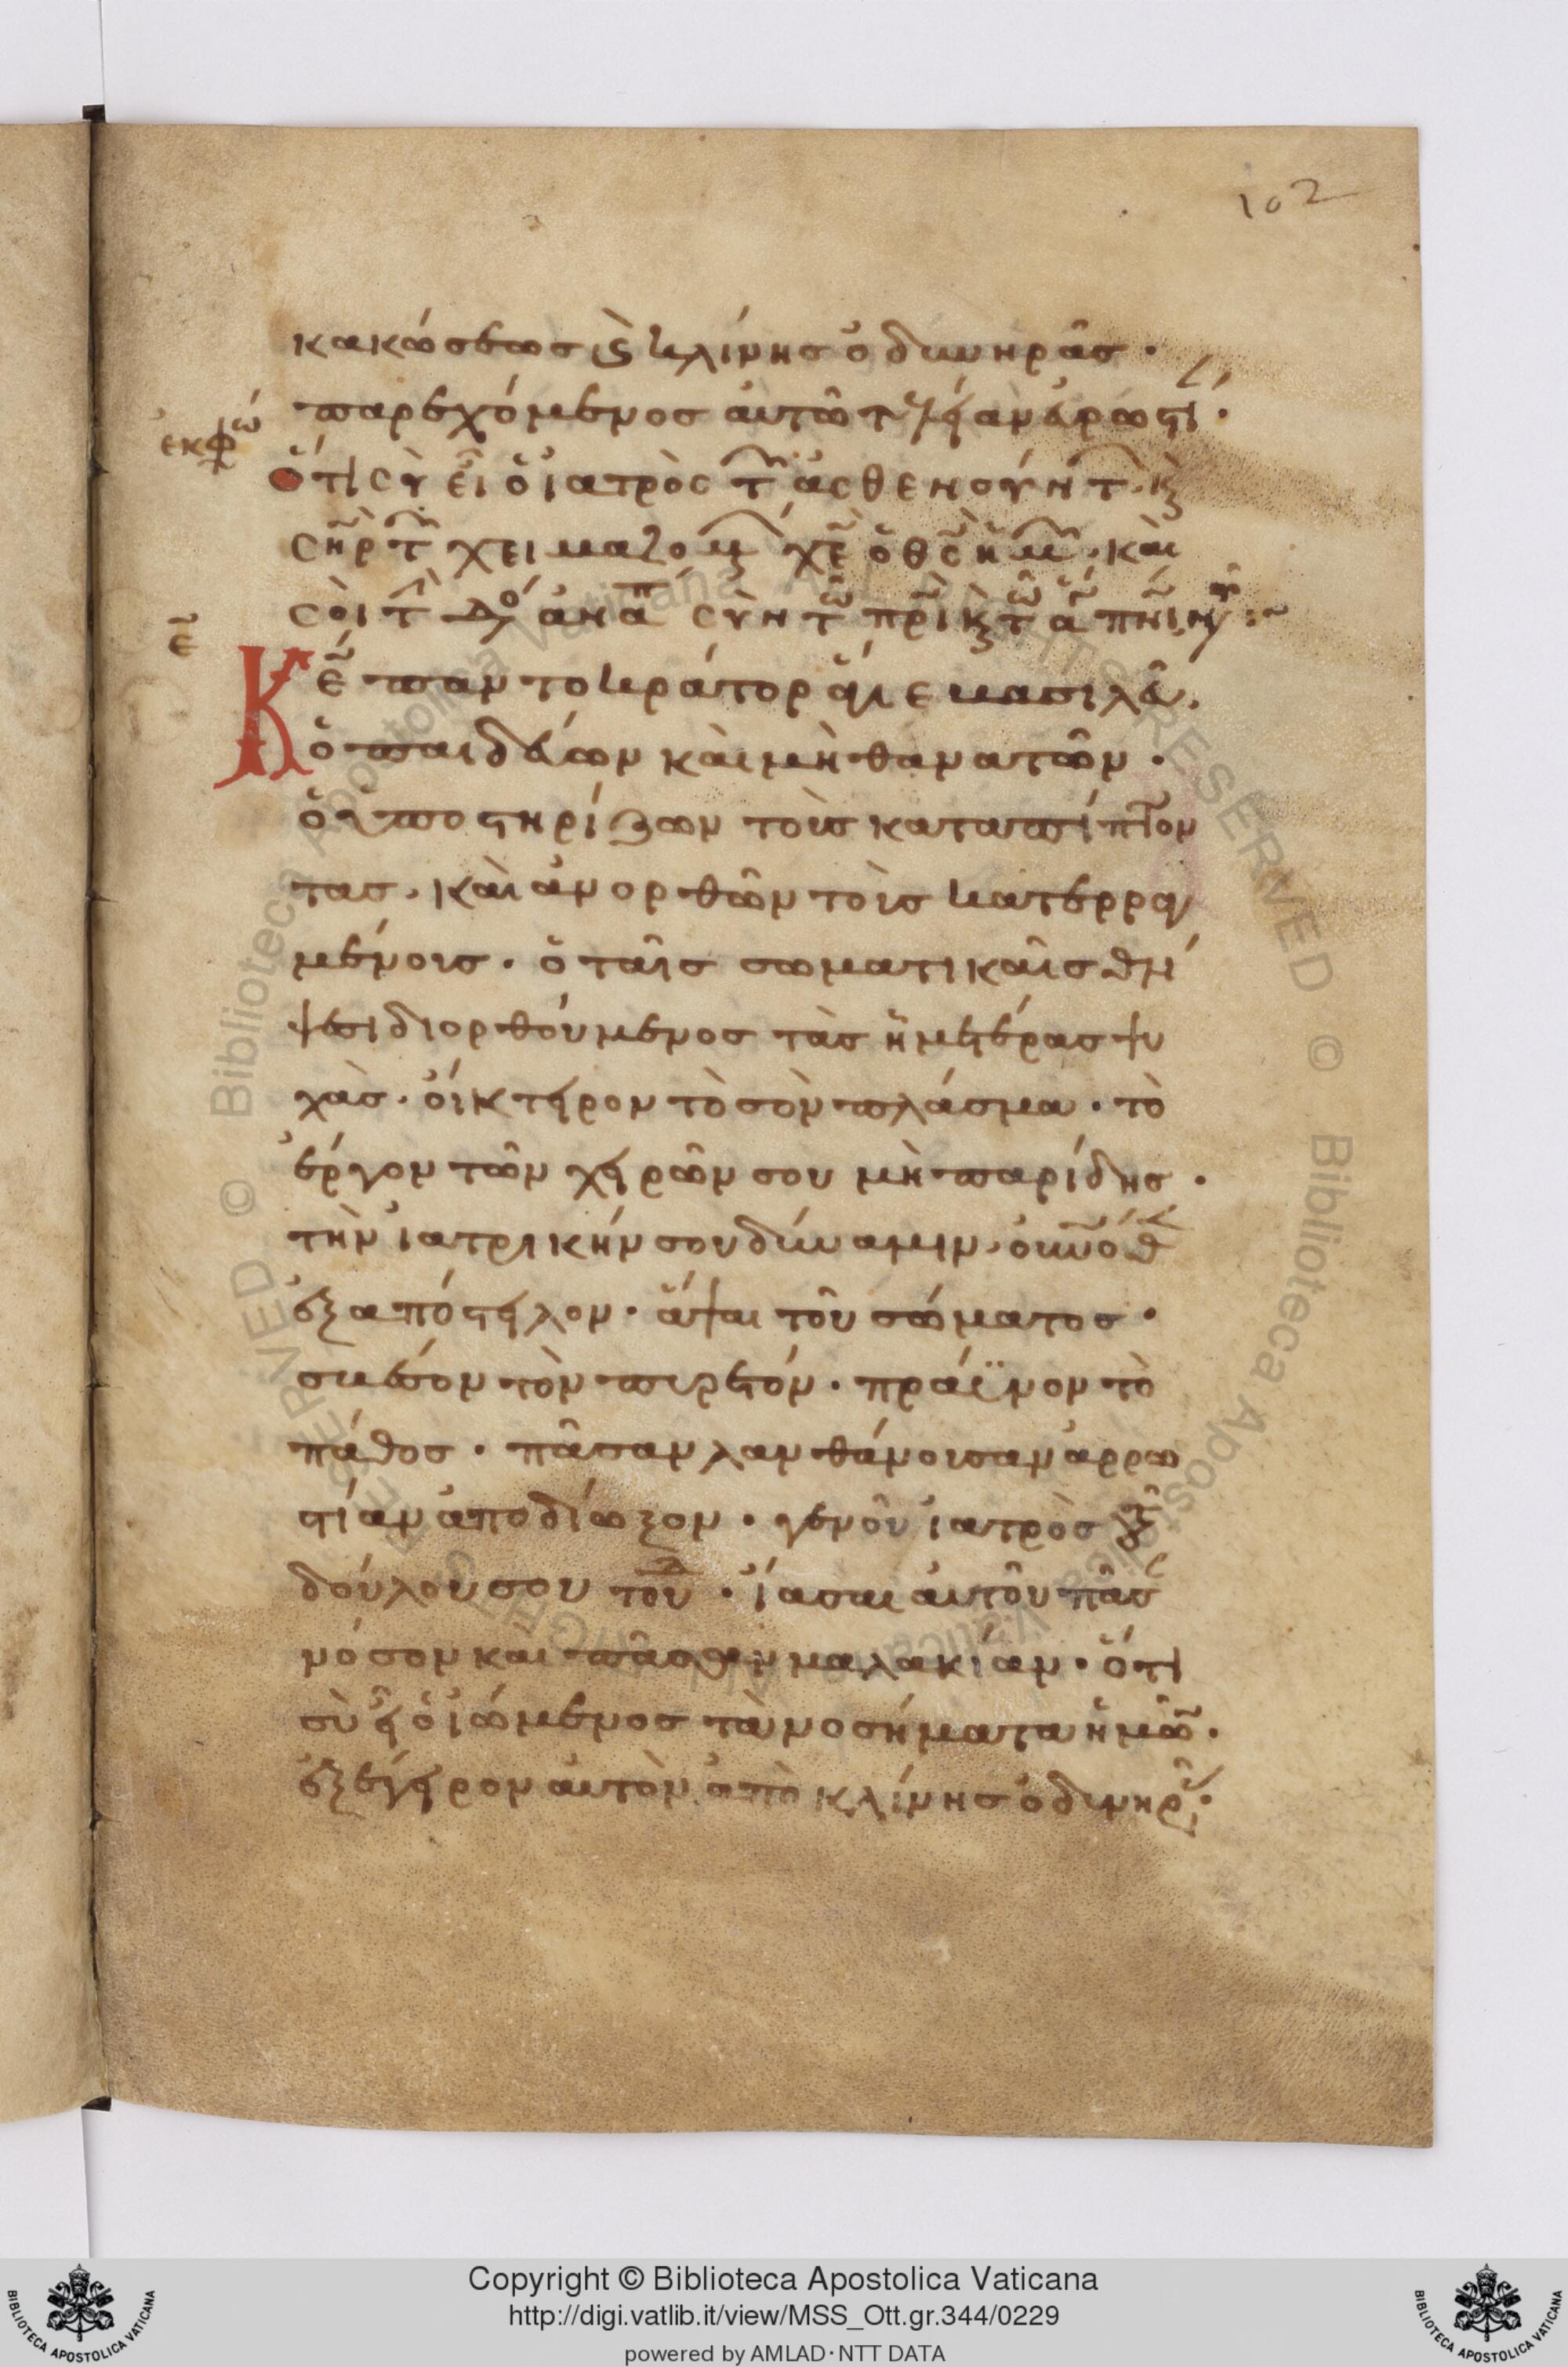 102
κακώσεως κ(αὶ) κλίνης ὀδυνηρᾶς ·
παρεχόμενος αὐτῶ τὴν ἀνάρωσιν ·
ἐκφώ
ὅτι σὺ εἶ ὁ ἰατρὸς τῶν ἀσθενούντων κ(αὶ)
σ(ωτ)ὴρ τῶν χειμαζομένων χ(ριστ)ὲ ὁ θ(εὸ)ς ἡμῶν · καὶ
σοὶ τὴν δόξαν ἀναπ σὺν τῶ π(ατ)ρὶ κ(αὶ) τῶ ἁγίω πν(εύματ)ι νῦν :~
ε̄
Κ(ύρι)ε παντοκράτορ ἅγιε βασιλεῦ,
ὁ παιδεύων καὶ μὴ θανατῶν ·
ὁ ὑποστηρίζων τοὺς καταπίπτον
τας · καὶ ἀνορθῶν τοὺς κατερραγ
μένους · ὁ ταῖς σωματικαῖς θλί
ψεσι διορθούμενος τὰς ἡμετέρας ψυ
χάς · οἴκτειρον τὸ σὸν πλάσμα · τὸ
ἔργον τῶν χειρῶν σου μὴ παρίδης ·
τὴν ἰατρικήν σου δύναμιν οὐ(ρα)νόθεν
ἐξαπόστειλον · ἅψαι τοῦ σώματος ·
σβέσον τὸν πυρετόν · πράϋνον τὸ
πάθος · πᾶσαν λανθάνουσαν ἀρρω
στίαν ἀποδίωξον · γενοῦ ἰατρὸς τοῦ
δούλου σου τοῦδ · ἴασαι αὐτοῦ πᾶσαν
νόσον καὶ πᾶσαν μαλακίαν · ὅτι
σὺ εἶ ὁ ἰώμενος τὰ νοσήματα ἡμῶν ·
ἐξέγειρον αὐτὸν ἀπὸ κλίνης ὀδυνηρᾶς ·
Copyright © Biblioteca Apostolica Vaticana
http://digi.vatlib.it/view/MSS_Ott.gr.344/0229
powered by AMLAD·NTT DATA